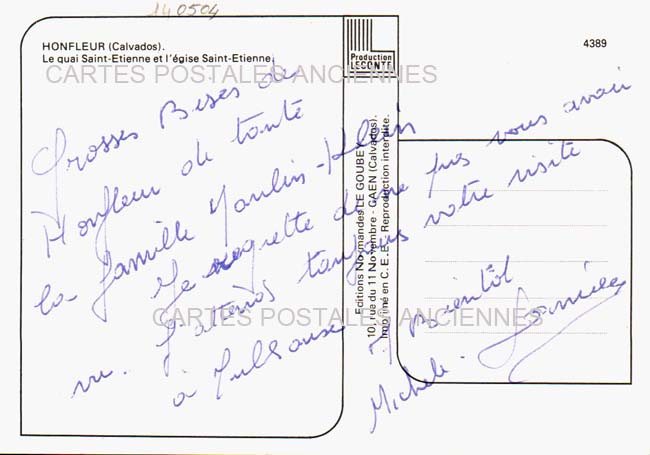 140504
HONFLEUR (Calvados).
Le quai Saint-Etienne et l'égise Saint-Etienne.
Production
LECONTE
4389
CARTES POSTALES ANCIENNES
Grosses Bises de
Honfleur de toute
la famille Moulin-Klein
Je regrette de ne pas vous avoir
vu. J'attends toujours votre visite
à Mulhouse
A Bientôt
Michèle.
Editions Normandes LE GOUBEY
10, rue du 11 Novembre - CAEN (Calvados).
Imprimé en C.E.E. - Reproduction interdite.
CARTES POSTALES ANCIENNES